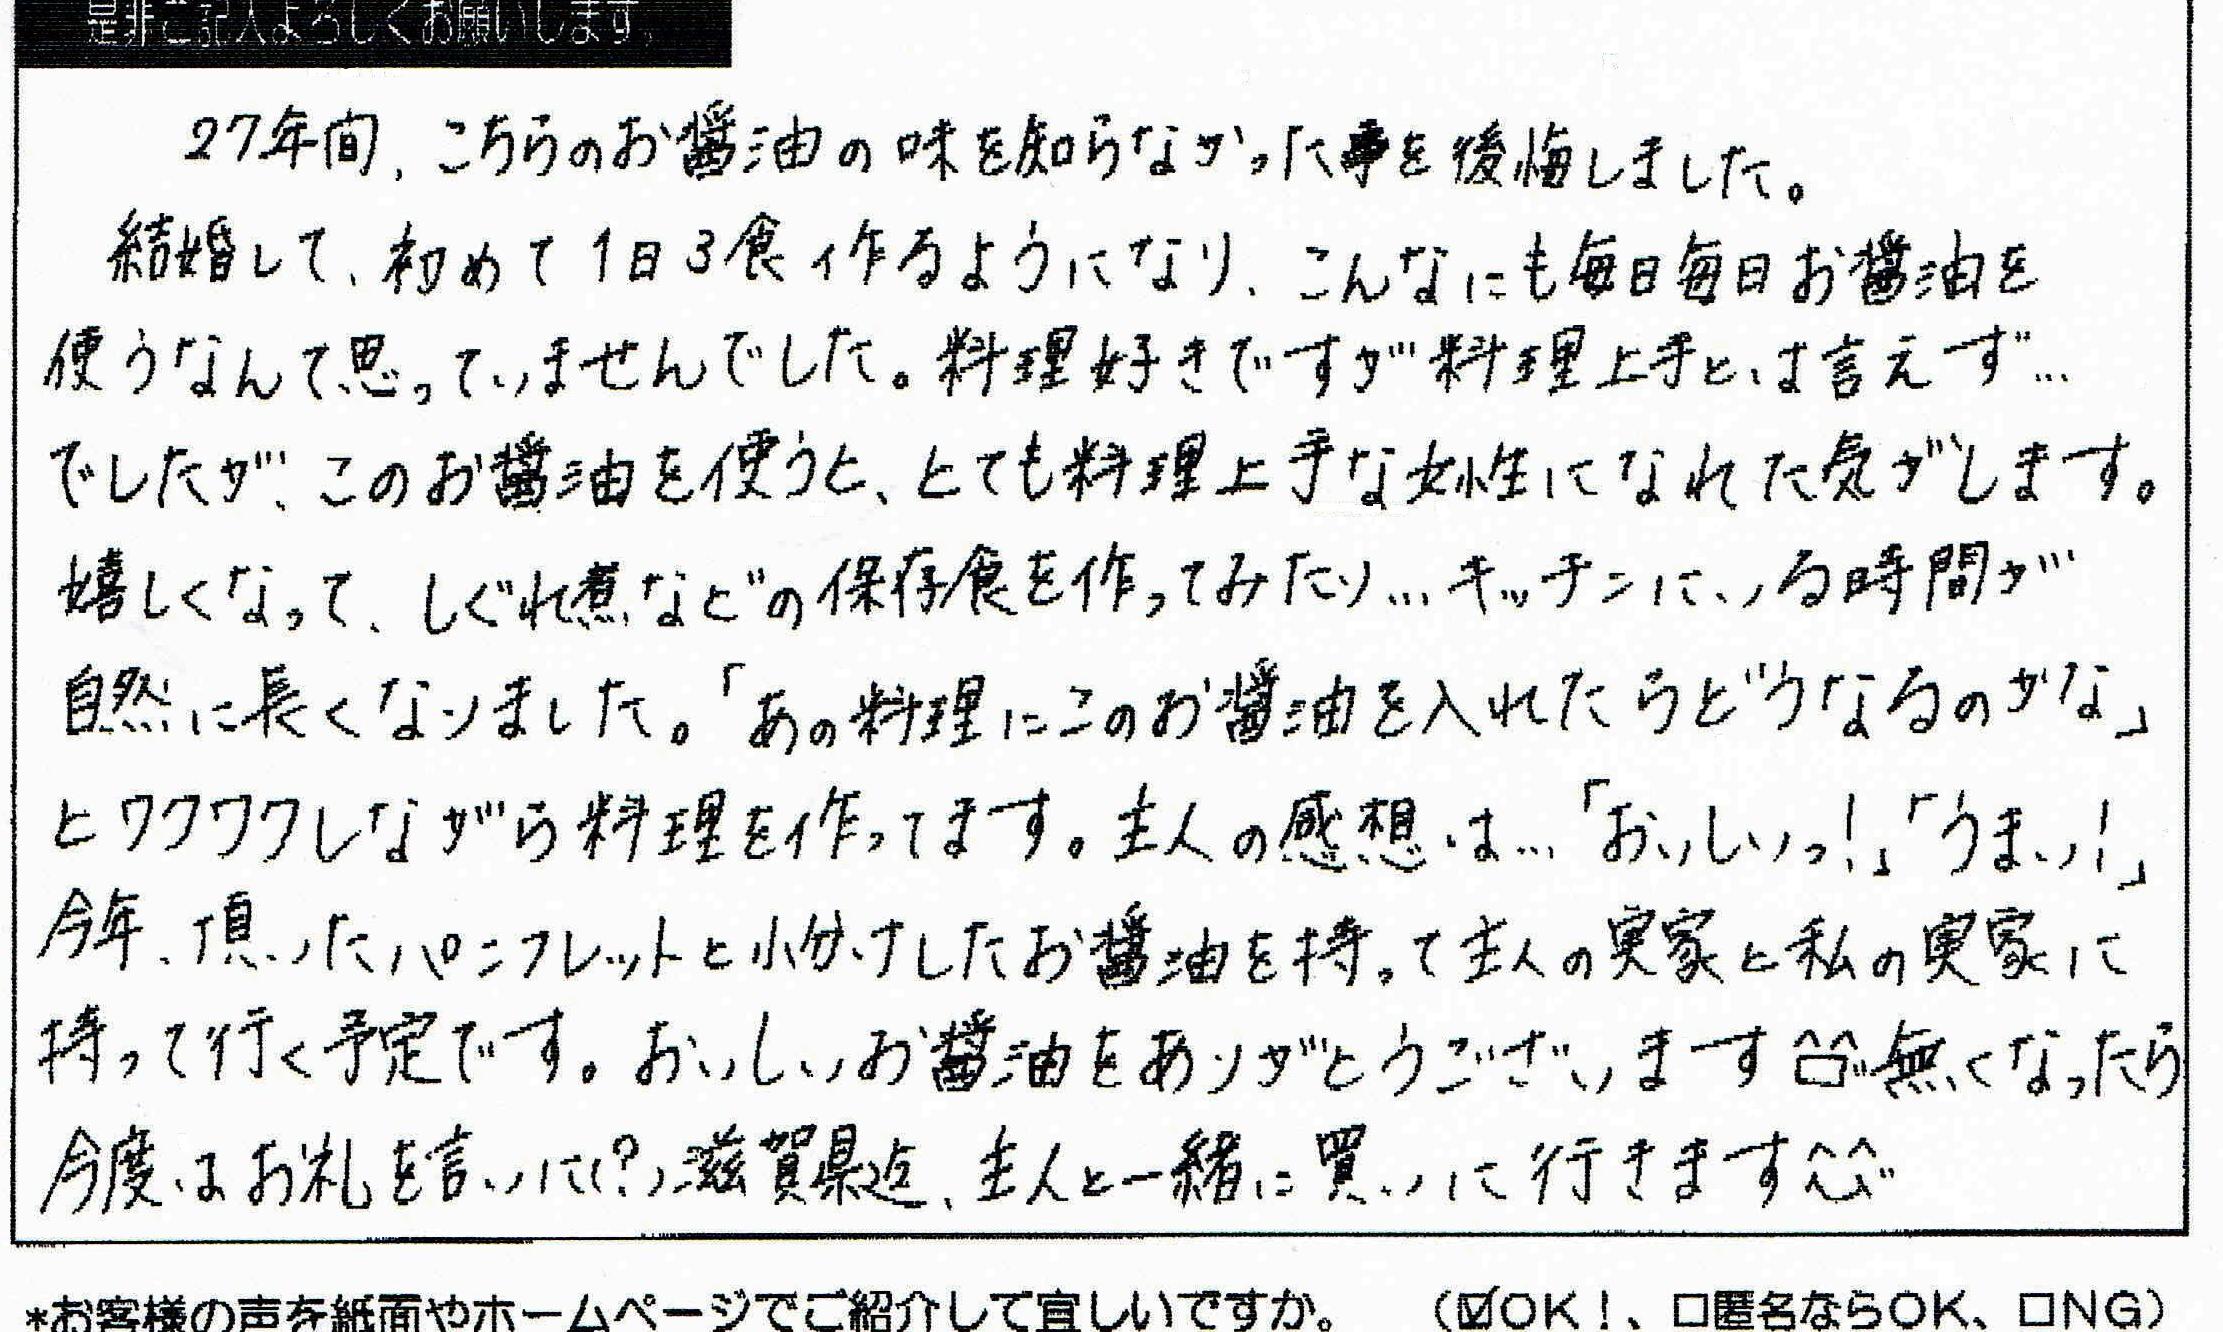 是非ご記入よろしくお願いします。
27年間、こちらのお醤油の味を知らなかった事を後悔しました。
結婚して、初めて1日3食作るようになり、こんなにも毎日毎日お醤油を
使うなんて思っていませんでした。料理好きですが料理上手とは言えず…
でしたが、このお醤油を使うと、とても料理上手な女性になれた気がします。
嬉しくなって、しぐれ煮などの保存食を作ってみたり…キッチンにいる時間が
自然に長くなりました。「あの料理にこのお醤油を入れたらどうなるのかな」
とワクワクしながら料理を作ってます。主人の感想は…「おいしいっ!」「うまい!」
今年、頂いたパンフレットと小分けしたお醤油を持って主人の実家と私の実家に
持って行く予定です。おいしいお醤油をありがとうございます^^無くなったら
今度はお礼を言いに(?)滋賀県迄、主人と一緒に買いに行きます^^
*お客様の声を紙面やホームページでご紹介して宜しいですか。 (☑OK!、□匿名ならOK、□NG)